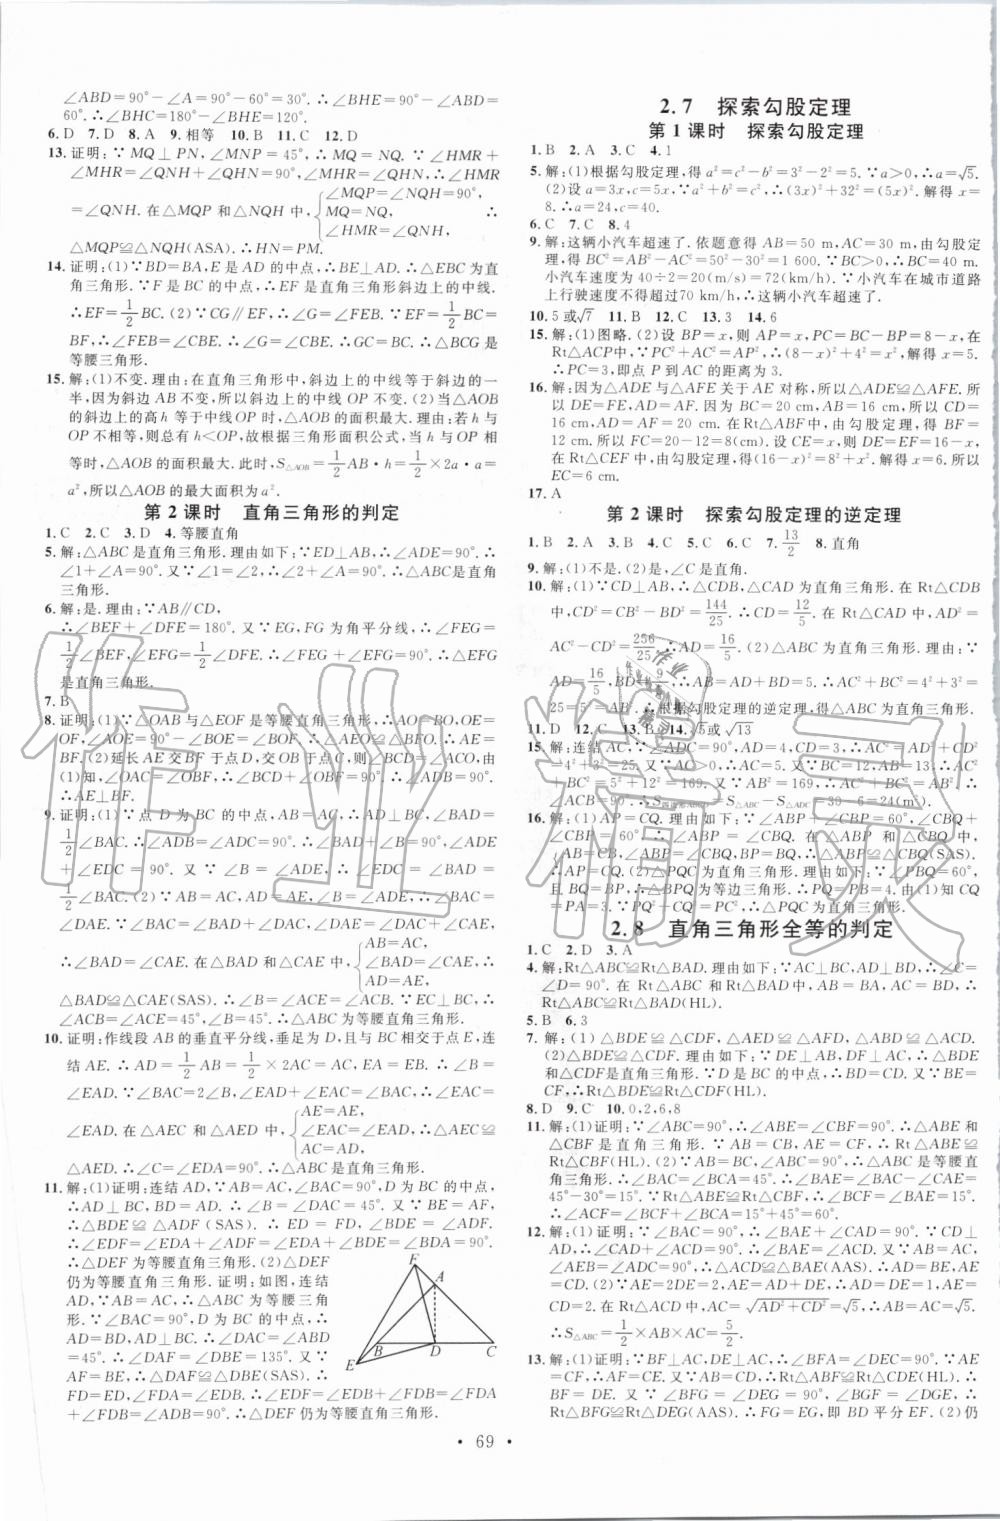 ∠ABD=90°-∠A=90°-60°=30°.∴∠BHE=90°-∠ABD=
60°.∴∠BHC=180°-∠BHE=120°.
6.D 7.D 8.A 9.相等 10.B 11.C 12.D
13.证明:∵MQ⊥PN,∠MNP=45°,∴MQ=NQ.∵∠HMR+
∠MHR=∠QHN+∠QNH=90°,∠MHR=∠QHN,∴∠HMR
=∠QNH.在△MQP和△NQH中,{∠MQP=∠NQH=90°, MQ=NQ, ∠HMR=∠QNH, ∴
△MQP≌△NQH(ASA).∴HN=PM.
14.证明:(1)∵BD=BA,E是AD的中点,∴BE⊥AD.∴△EBC为直
角三角形.∵F是BC的中点,∴EF是直角三角形斜边上的中线.
∴EF=1/2BC.(2)∵CG∥EF,∴∠G=∠FEB.∵EF=1/2BC=
BF,∴∠FEB=∠EBF.∴∠G=∠GBC.∴GC=BC.∴△BCG是
等腰三角形.
15.解:(1)不变.理由:在直角三角形中,斜边上的中线等于斜边的一
半,因为斜边AB不变,所以斜边上的中线OP不变.(2)当△AOB
的斜边上的高h等于中线OP时,△AOB的面积最大.理由:若h与
OP不相等,则总有h<OP,故根据三角形面积公式,当h与OP相
等时,△AOB的面积最大.此时,S△AOB=1/2AB·h=1/2×2a·a=
a²,所以△AOB的最大面积为a².
第2课时 直角三角形的判定
1.C 2.C 3.D 4.等腰直角
5.解:△ABC是直角三角形.理由如下:∵ED⊥AB,∴∠ADE=90°.
∴∠1+∠A=90°.又∵∠1=∠2,∴∠2+∠A=90°.∴△ABC是直角
三角形.
6.解:是.理由:∵AB∥CD,
∴∠BEF+∠DFE=180°.又∵EG,FG为角平分线,∴∠FEG=
1/2∠BEF,∠EFG=1/2∠DFE.∴∠FEG+∠EFG=90°.∴△EFG
是直角三角形.
7.B
8.证明:(1)∵△OAB与△EOF是等腰直角三角形,∴AO=BO,OE=
OF,∠AOE=90°-∠BOE=∠BOF.∴△AEO≌△BFO.∴AE=
BF.(2)延长AE交BF于点D,交OB于点C,则∠BCD=∠ACO,由
(1)知,∠OAC=∠OBF,∴∠BCD+∠OBF=90°.∴∠BDA=90°.
∴AE⊥BF.
9.证明:(1)∵点D为BC的中点,AB=AC,∴∠BAD=
1/2∠BAC.∴∠ADB=∠ADC=90°.∴∠BAD+∠B=90°,∠ADE
+∠EDC=90°.又∵∠B=∠ADE,∴∠EDC=∠BAD=
1/2∠BAC.(2)∵∠BAC=∠DAE,AD=AE,∴∠BAC=
∠DAE.∵∠BAC=∠BAD+∠DAC,∠DAE=∠DAC+
∠CAE,∴∠BAD=∠CAE.在△BAD和△CAE中,{AB=AC, ∠BAD=∠CAE, AD=AE, ∴
△BAD≌△CAE(SAS).∴∠B=∠ACE=45°.∵EC⊥BC,∴∠B+
∠ACB=45°,∠B=45°.∴△ABC为等腰直角三角形.
10.证明:作线段AB的垂直平分线,垂足为D,且与BC相交于点E,连
结AE.∴AD=1/2AB=1/2×2AC=AC,EA=EB.∴∠EAB=
∠B.∵∠BAC=2∠B,∠BAC=∠EAB+∠EAC,∴∠EAC=
∠EAD.在△AEC和△AED中,{AE=AE, ∠EAC=∠EAD, AC=AD, ∴△AEC≌
△AED.∴∠C=∠EDA=90°.∴△ABC是直角三角形.
11.解:(1)证明:连结AD,∵AB=AC,∠BAC=90°,D为BC的中点,
∴AD⊥BC,BD=AD.∴∠B=∠DAC=45°.又∵BE=AF,
∴△BDE≌△ADF(SAS).∴ED=FD,∠BDE=∠ADF.
∴∠EDF=∠EDA+∠ADF=∠EDA+∠BDE=∠BDA=90°.
∴△DEF为等腰直角三角形.(2)△DEF
仍为等腰直角三角形.证明:如图,连结
AD,∵AB=AC,∴△ABC为等腰三角
形.∵∠BAC=90°,D为BC的中点,∴
AD=BD,AD⊥BC.∴∠DAC=∠ABD
=45°.∴∠DAF=∠DBE=135°.又∵
AF=BE,∴△DAF≌△DBE(SAS).∴
FD=ED,∠FDA=∠EDB.∴∠EDF=∠EDB+∠FDB=∠FDA
+∠FDB=∠ADB=90°.∴△DEF仍为等腰直角三角形.
F
A
B
D
C
E
2.7 探索勾股定理
第1课时 探索勾股定理
1.B 2.A 3.C 4.1
5.解:(1)根据勾股定理,得a²=c²-b²=3²-2²=5.∵a>0,∴a=√5.
(2)设a=3x,c=5x,∵a²+b²=c²,∴(3x)²+32²=(5x)².解得x=
8.∴a=24,c=40.
6.C 7.C 8.4
9.解:这辆小汽车超速了.依题意得AB=50 m,AC=30 m,由勾股定
理,得BC²=AB²-AC²=50²-30²=1 600.∵BC>0,∴BC=40 m.
小汽车速度为40÷2=20(m/s)=72(km/h).∵小汽车在城市道路
上行驶速度不得超过70 km/h,∴这辆小汽车超速了.
10.5或√7 11.B 12.C 13.3 14.6
15.解:(1)图略.(2)设BP=x,则AP=x,PC=BC-BP=8-x,在
Rt△ACP中,∵PC²+AC²=AP²,∴(8-x)²+4²=x².解得x=5.
∴PC=3,即点P到AC的距离为3.
16.解:因为△ADE与△AFE关于AE对称,所以△ADE≌△AFE.所
以DE=FE,AD=AF.因为BC=20 cm,AB=16 cm,所以CD=
16 cm,AD=AF=20 cm.在Rt△ABF中,由勾股定理,得BF=
12 cm.所以FC=20-12=8(cm).设CE=x,则DE=EF=16-x,
在Rt△CEF中,由勾股定理,得(16-x)²=8²+x².解得x=6.所以
EC=6 cm.
17.A
第2课时 探索勾股定理的逆定理
1.B 2.A 3.B 4.C 5.C 6.C 7.13/2 8.直角
9.解:(1)不是.(2)是,∠C是直角.
10.解:(1)∵CD⊥AB,∴△CDB,△CDA为直角三角形.在Rt△CDB
中,CD²=CB²-BD²=144/25.∴CD=12/5.在Rt△CAD中,AD²=
AC²-CD²=256/25.∴AD=16/5.(2)△ABC为直角三角形.理由:∵
AD=16/5,BD=9/5,∴AB=5.∴AC²+BC²=4²+3²=
25=5²=AB².∴根据勾股定理的逆定理,得△ABC为直角三角形.
11.D 12.C 13.B 14.√5或√13
15.解:连结AC,∵∠ADC=90°,AD=4,CD=3,∴AC²=AD²+CD²
=4²+3²=25.又∵AC>0,∴AC=5.又∵BC=12,AB=13,∴AC²
+BC²=5²+12²=169.又∵AB²=169,∴AC²+BC²=AB².
∴∠ACB=90°.∴S四边形ABCD=S△ABC-S△ADC=30-6=24(m²).
16.解:(1)AP=CQ.理由如下:∵∠ABP+∠CBP=60°,∠CBQ+
∠CBP=60°,∴∠ABP=∠CBQ.在△ABP和△CBQ中,
∵AB=CB,∠ABP=∠CBQ,BP=BQ,∴△ABP≌△CBQ(SAS).
∴AP=CQ.(2)△PQC为直角三角形.理由如下:∵∠PBQ=60°,
且BQ=BP,∴△BPQ为等边三角形.∴PQ=PB=4.由(1)知CQ
=PA=3.∵PQ²+CQ²=4²+3²=25=PC²,∴△PQC为直角三角形.
2.8 直角三角形全等的判定
1.C 2.D 3.A
4.解:Rt△ABC≌Rt△BAD.理由如下:∵AC⊥BC,AD⊥BD,∴∠C=
∠D=90°.在Rt△ABC和Rt△BAD中,∵AB=BA,AC=BD,
∴Rt△ABC≌Rt△BAD(HL).
5.B 6.3
7.解:(1)△BDE≌△CDF,△AED≌△AFD,△ABD≌△ACD.
(2)△BDE≌△CDF.理由如下:∵DE⊥AB,DF⊥AC,∴△BDE
和△CDF是直角三角形.∵D是BC的中点,∴BD=CD.又∵BE=
CF,∴Rt△BDE≌Rt△CDF(HL).
8.D 9.C 10.0,2,6,8
11.解:(1)证明:∵∠ABC=90°,∴∠CBF=∠ABE=90°,∴△ABE和
△CBF是直角三角形.∵AB=BC,AE=CF,∴Rt△ABE≌
Rt△CBF(HL).(2)∵AB=BC,∠ABC=90°,∴△ABC是等腰直
角三角形.∴∠ACB=∠BAC=45°.∴∠BAE=∠BAC-∠CAE=
45°-30°=15°.∵Rt△ABE≌Rt△CBF,∴∠BCF=∠BAE=15°.
∴∠ACF=∠BCF+∠BCA=15°+45°=60°.
12.解:(1)证明:∵∠BAC=90°,∴∠BAE+∠CAD=90°.∵CD⊥
AD,∴∠CAD+∠ACD=90°.∴∠BAE=∠ACD.又∵AB=AC,
∠ADC=∠BEA,∴△ADC≌△BEA(AAS).∴AD=BE,AE
=CD.(2)∵AE=2DE=2,AE=AD-DE,∴AD=DE=1,AE=
CD=2.在Rt△ACD中,AC=√(AD²+CD²)=√5,∴AB=AC=√5.
∴S△ABC=1/2×AB×AC=5/2.
13.解:(1)证明:∵BF⊥AC,DE⊥AC,∴∠BFA=∠DEC=90°.∵AE=
CF,∴AF=CE.又∵AB=CD,∴Rt△ABF≌Rt△CDE(HL).
∴BF=DE.又∵∠BFG=∠DEG=90°,∠BGF=∠DGE,∴
Rt△BFG≌Rt△DEG(AAS).∴FG=EG,即BD平分EF.(2)仍
· 69 ·
作业精灵